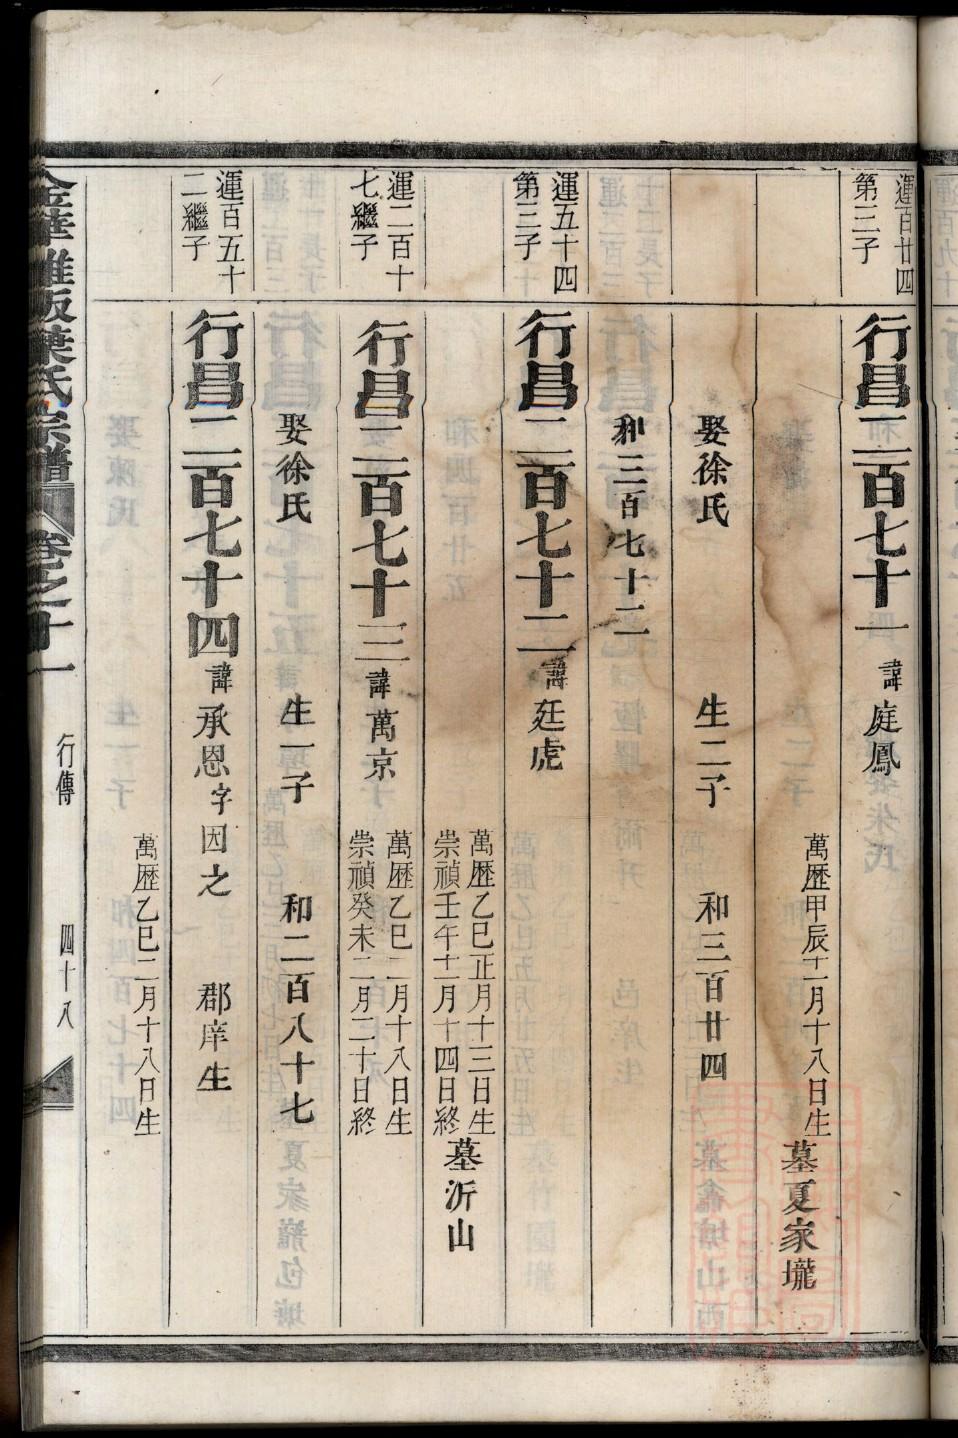 運百廿四
第三子
行昌二百七十一 諱庭鳳
萬歷甲辰十二月十八日生
墓夏家壠
娶徐氏 生二子 和三百廿四
和三百七十二
運五十四
第三子
行昌二百七十二 諱廷虎
萬歷乙巳正月十三日生
崇禎壬午十二月十四日終
墓沂山
運二百十
七繼子
行昌二百七十三 諱萬京
萬歷乙巳二月十八日生
崇禎癸未二月二十日終
娶徐氏 生一子 和二百八十七
運百五十
二繼子
行昌二百七十四 諱承恩字因之 郡庠生
萬歷乙巳二月十八日生
葉氏宗譜 卷之十一 行傳 四十八